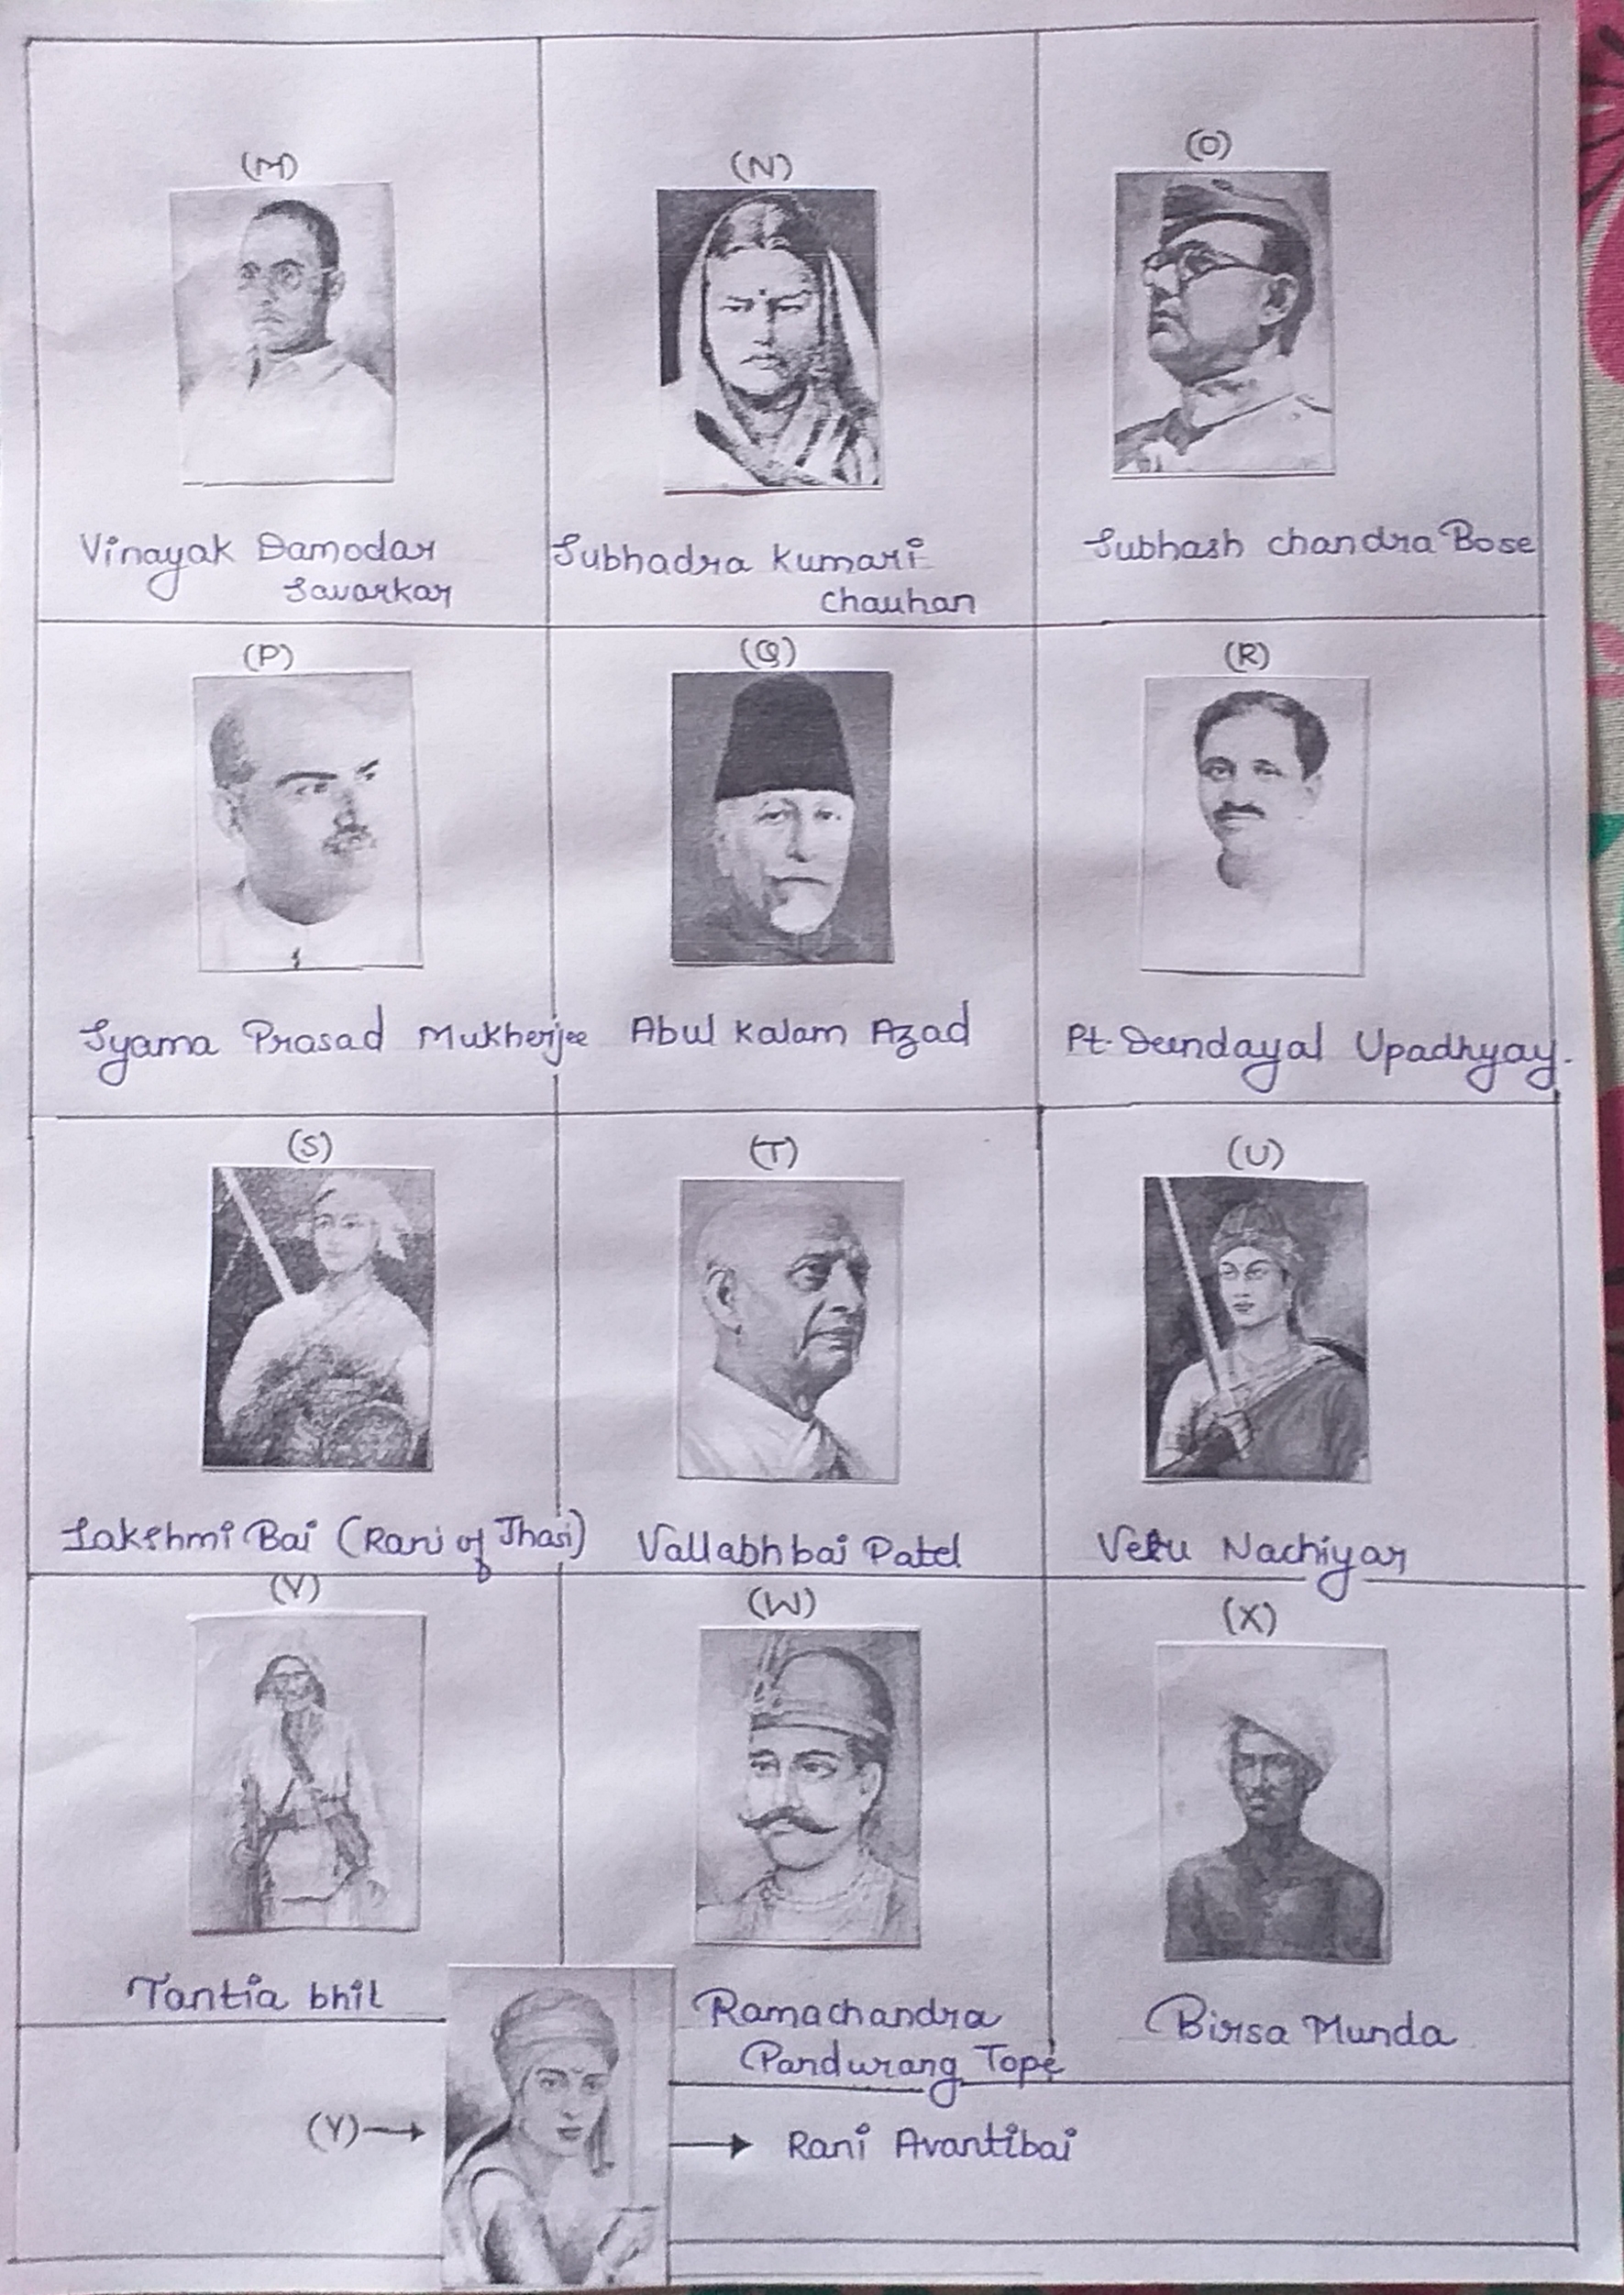 (M)
(N)
(O)
Vinayak Damodar
Savarkar
Subhadra Kumari
Chauhan
Subhash chandra Bose
(P)
(Q)
(R)
Syama Prasad Mukherjee
Abul Kalam Azad
Pt. Deendayal Upadhyay.
(S)
(T)
(U)
Lakshmi Bai (Rani of Jhasi)
Vallabhbai Patel
Velu Nachiyar
(V)
(W)
(X)
Tantia bhil
Ramachandra
Pandurang Tope
Birsa Munda
(Y)
Rani Avantibai